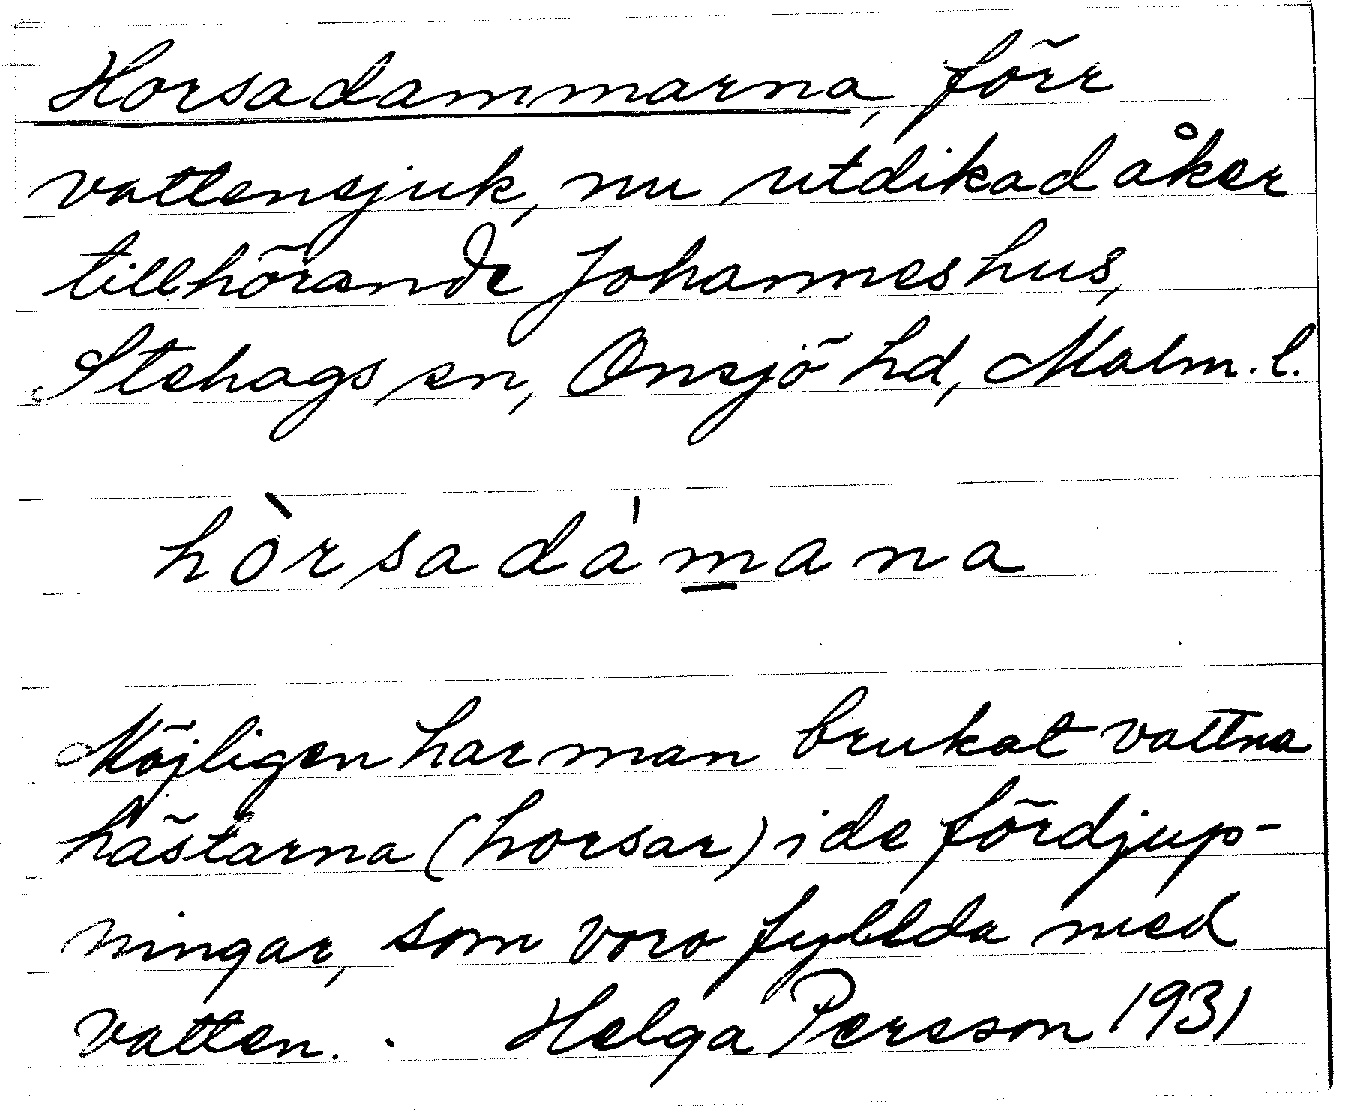 Horsadammarna, förr
vattensjuk, nu utdikad åker
tillhörande Johanneshus,
Stehags sn, Onsjö hd, Malm. l.
hòrsadàmana
Möjligen har man brukat vattna
hästarna (horsar) i de fördjup-
ningar, som voro fyllda med
vatten. Helga Persson 1931